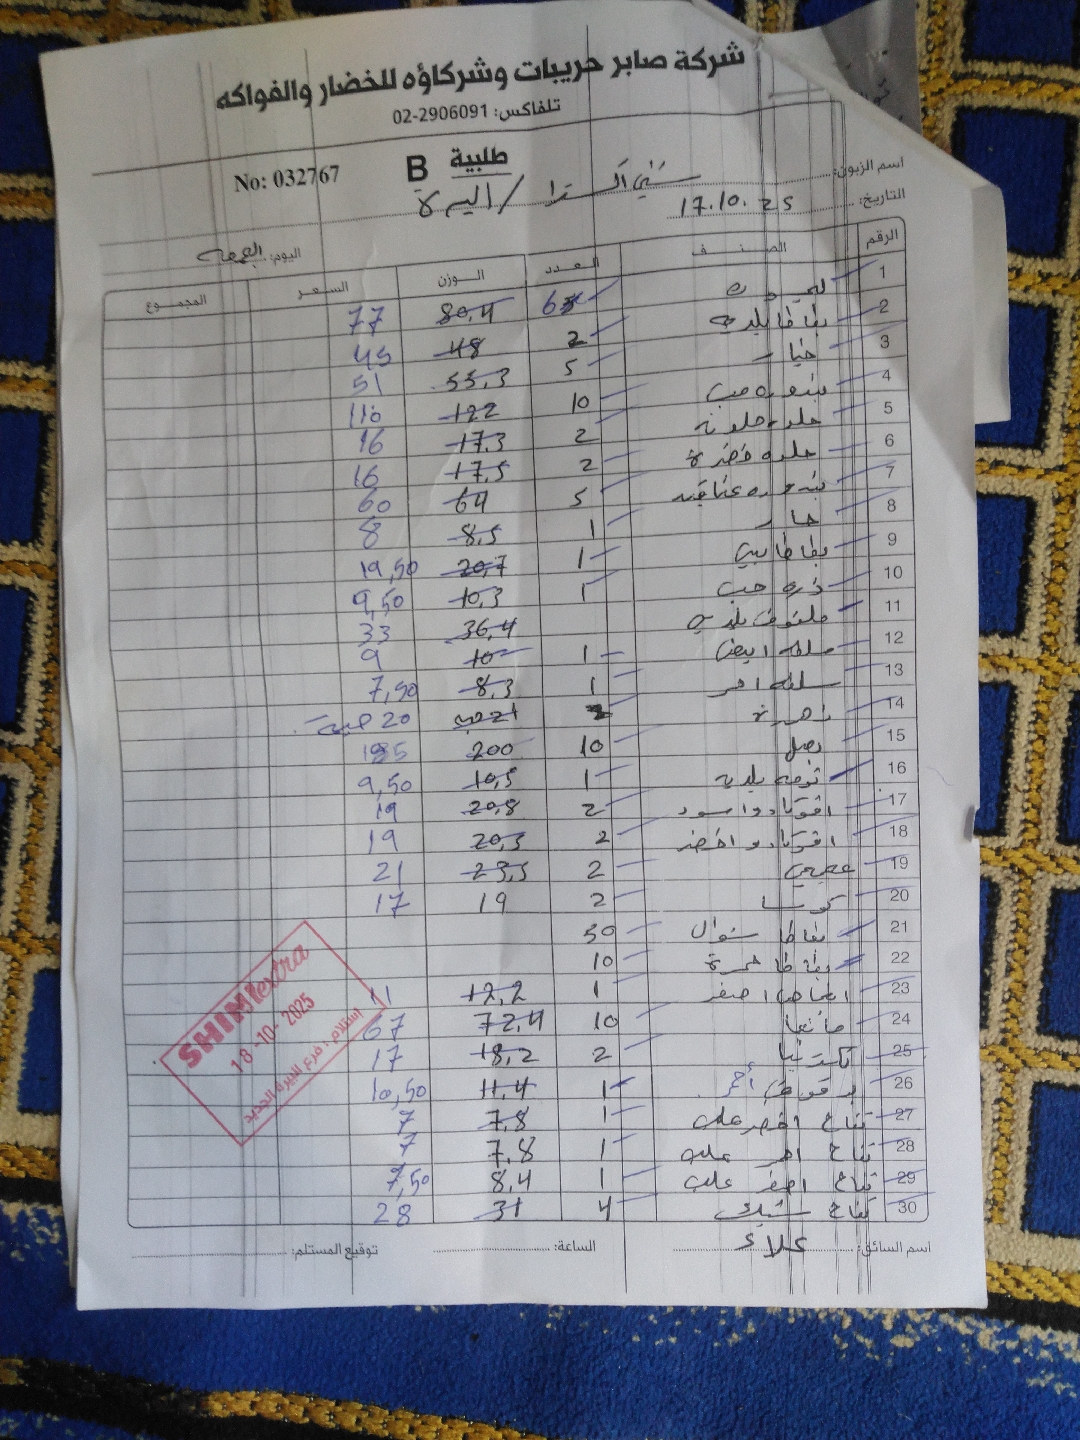 شركة صابر حريبات وشركاؤه للخضار والفواكه
تلفاكس: 02-2906091
طلبية B No: 032767
اسم الزبون: شني اكسترا / البيرة
التاريخ: 17.10.25
اليوم: الجمعه
الرقم الصنف العدد الوزن السعر المجموع
1 ليمونه 80,4 77
2 بطاطا بلديه 2 48 45
3 خيار 5 55,3 51
4 بندوره حب 10 122 110
5 2 17,3 16
6 2 17,5 16
7 بندوره عناقيد 5 64 60
8 حار 1 8,5 8
9 بطاطا بيبي 1 20,7 19,50
10 ذره حب 1 10,3 9,50
11 ملفوف بلدي 36,4 33
12 ملفوف ابيض 1 10 9
13 احمر 1 8,3 7,50
14 زهرة 20
15 بصل 10 200 185
16 ثومه بلديه 1 10,5 9,50
17 افوكادو اسود 2 20,8 19
18 افوكادو اخضر 2 20,3 19
19 عجمي 2 23,5 21
20 كوسا 2 19 17
21 بطاطا شوال 50
22 بطاطا حمرة 10
23 اجاص اصفر 1 12,2 11
24 مانجا 10 72,4 67
25 2 18,2 17
26 برقوق أحمر 1 11,4 10,50
27 تفاح اخضر علب 1 7,8 7
28 تفاح احمر علب 1 7,8 7
29 تفاح اصفر علب 1 8,4 7,50
30 تفاح 4 31 28
SHINI extra
18-10-2025
استلام: فرع البيرة الجديد
اسم السائق: علاء الساعة: توقيع المستلم: